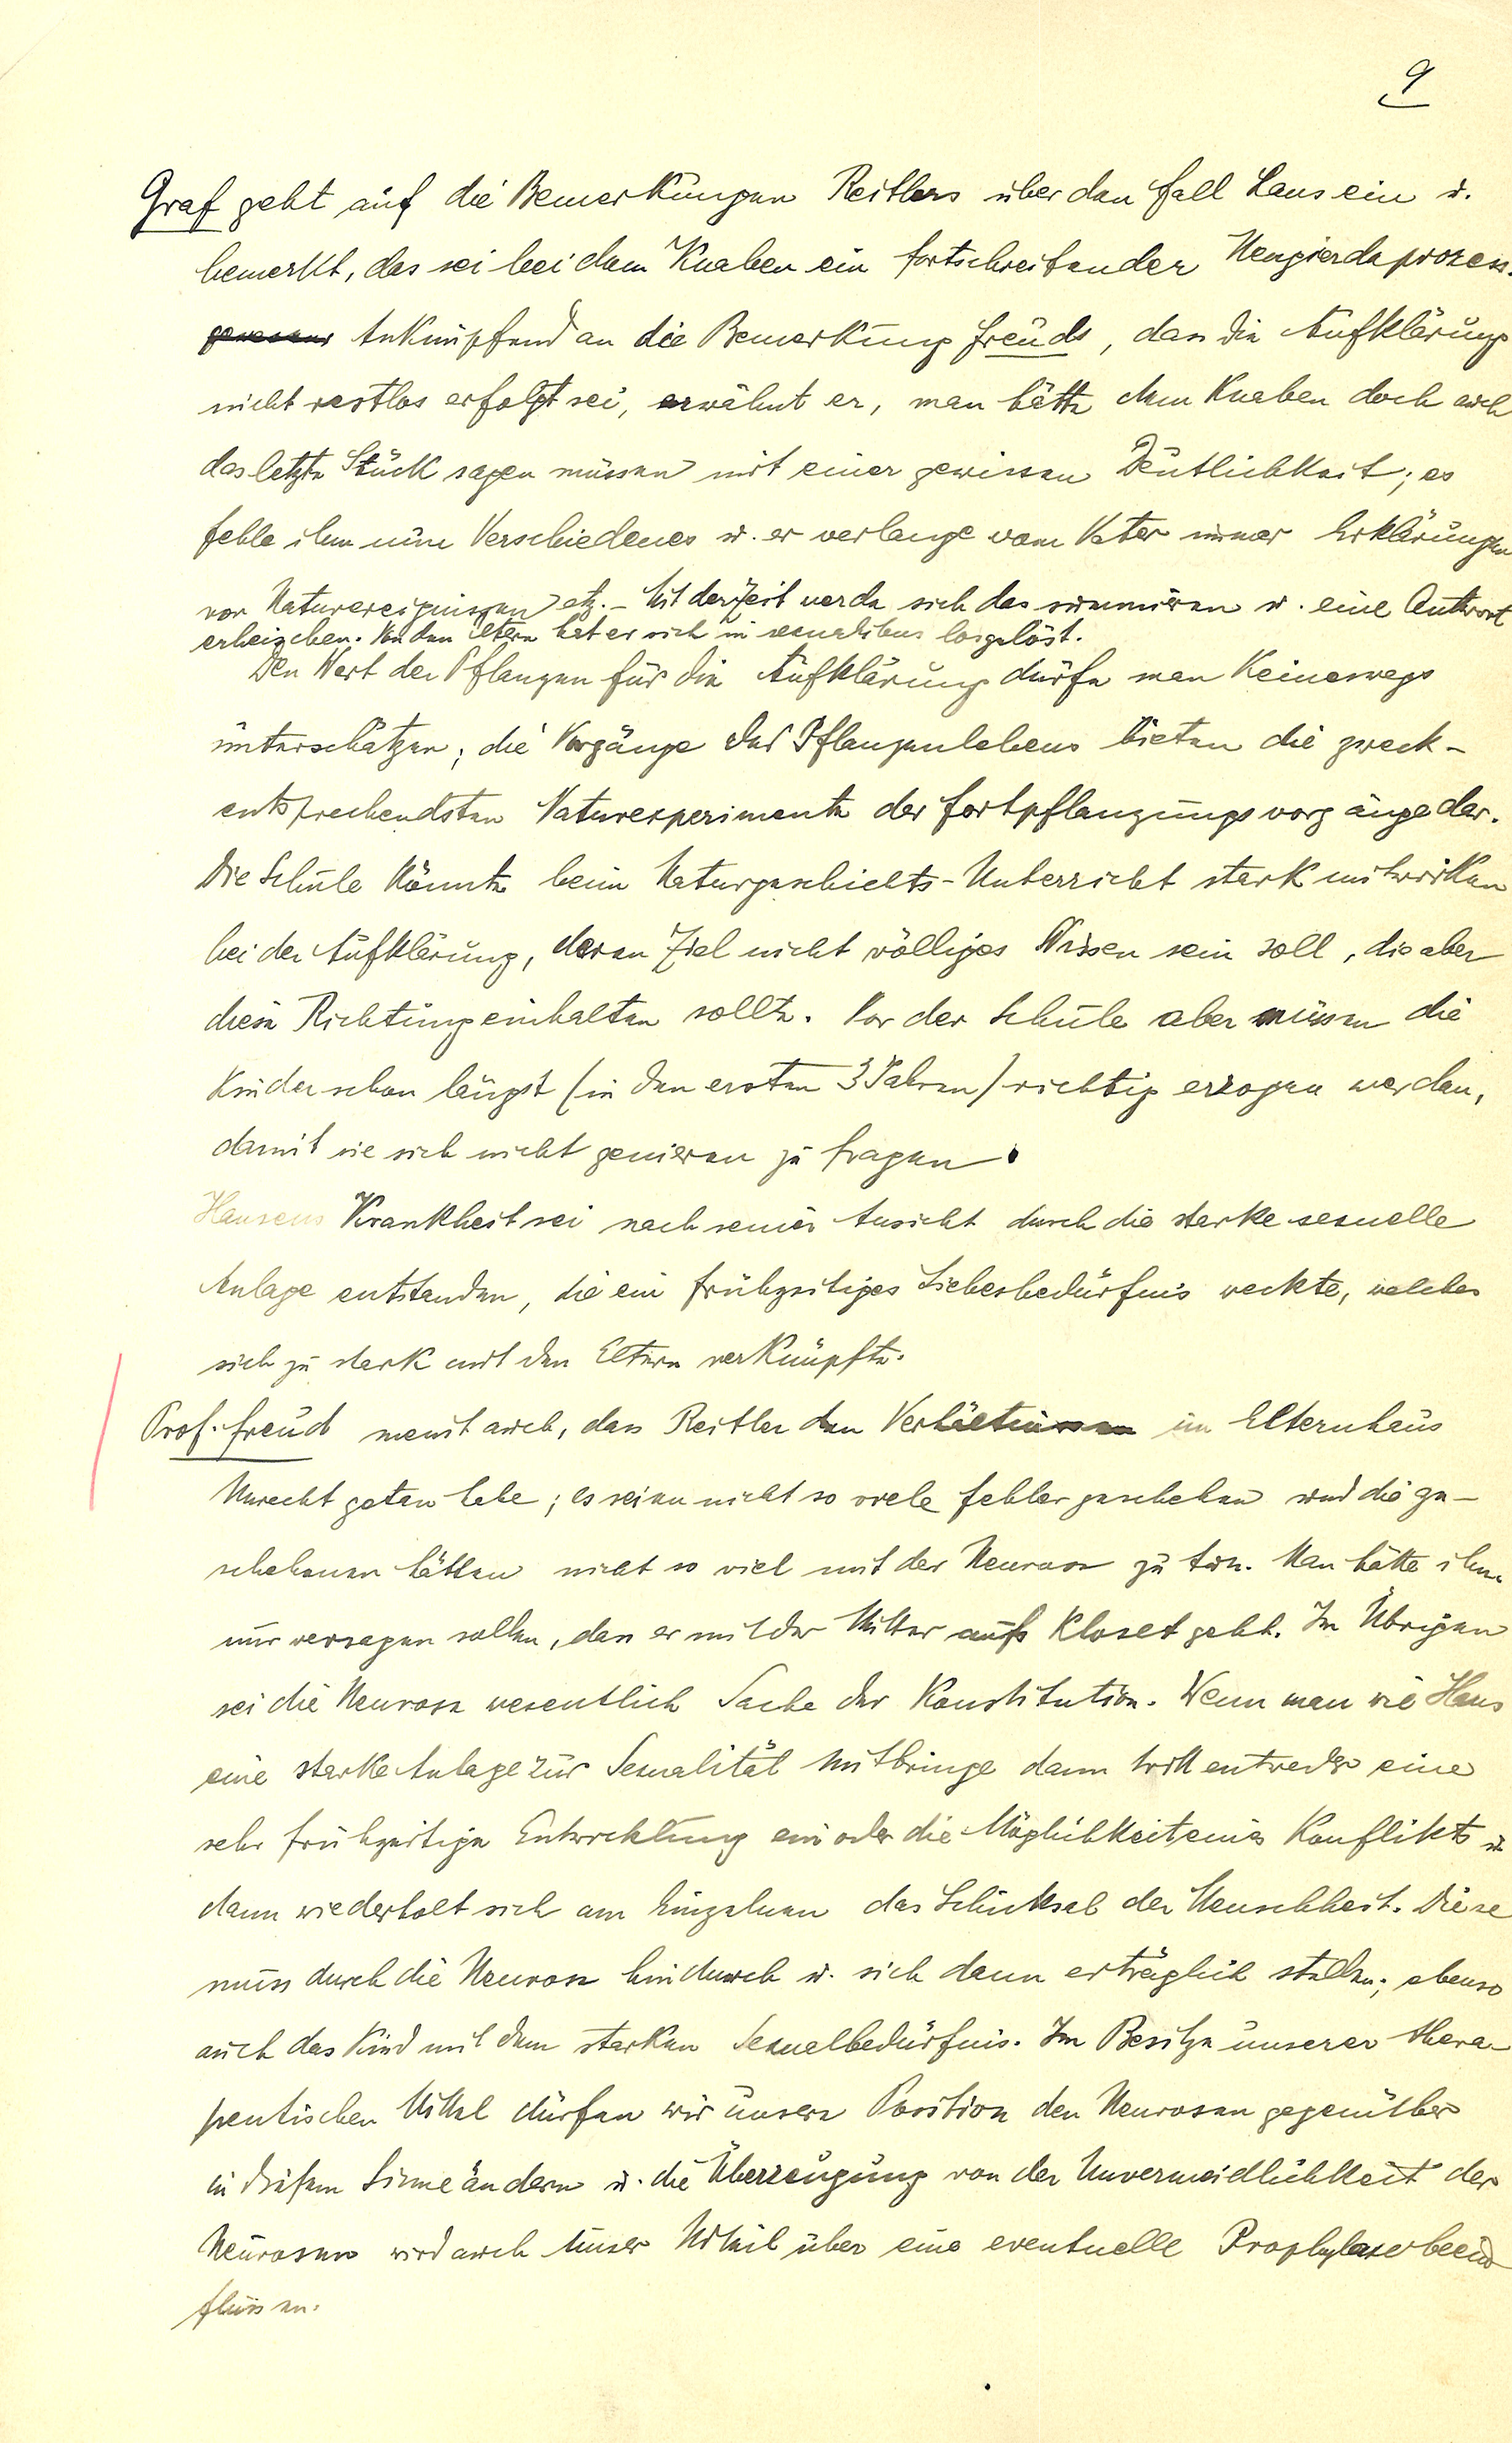 9
Graf geht auf die Bemerkungen Reitlers über den Fall Hans ein u.
bemerkt, das sei bei dem Knaben ein fortschreitender Neugierdeprozess.
Anknüpfend an die Bemerkung Freuds, dass die Aufklärung
nicht restlos erfolgt sei, erwähnt er, man hätte dem Knaben doch auch
das letzte Stück sagen müssen mit einer gewissen Deutlichkeit; es
fehle ihm nun Verschiedenes u. er verlange vom Vater immer Erklärungen
von Naturereignissen etz. – Mit der Zeit werde sich das summieren u. eine Antwort
erheischen. Von den Eltern hat er sich in sexualibus losgelöst.
Den Wert der Pflanzen für die Aufklärung dürfe man keineswegs
unterschätzen; die Vorgänge des Pflanzenlebens bieten die zweck-
entsprechendsten Naturexperimente der Fortpflanzungsvorgänge dar.
Die Schule könnte beim Naturgeschichts-Unterricht stark mitwirken
bei der Aufklärung, deren Ziel nicht völliges Wissen sein soll, die aber
diese Richtung einhalten sollte. Vor der Schule aber müssen die
Kinder schon längst (in den ersten 3 Jahren) richtig erzogen werden,
damit sie sich nicht genieren zu fragen.
Hansens Krankheit sei nach seiner Ansicht durch die starke sexuelle
Anlage entstanden, die ein frühzeitiges Liebesbedürfnis weckte, welches
sich zu stark mit den Eltern verknüpfte.
Prof. Freud meint auch, dass Reitler den Verhältnissen im Elternhaus
Unrecht getan habe; es seien nicht so viele Fehler geschehen und die ge-
schehenen hätten nicht so viel mit der Neurose zu tun. Man hätte ihm
nur versagen sollen, dass er mit der Mutter aufs Kloset geht. Im Übrigen
sei die Neurose wesentlich Sache der Konstitution. Wenn man wie Hans
eine starke Anlage zur Sexualität mitbringe dann tritt entweder eine
sehr frühzeitige Entwicklung ein oder die Möglichkeit eines Konflikts u.
dann wiederholt sich am Einzelnen das Schicksal der Menschheit. Diese
muss durch die Neurose hindurch u. sich dann erträglich stellen; ebenso
auch das Kind mit dem starken Sexuelbedürfnis. Im Besitze unserer thera-
peutischen Mittel dürfen wir unsere Position den Neurosen gegenüber
in diesem Sinne ändern u. die Überzeugung von der Unvermeidlichkeit der
Neurosen wird auch unser Urteil über eine eventuelle Prophylaxe beein
flussen.